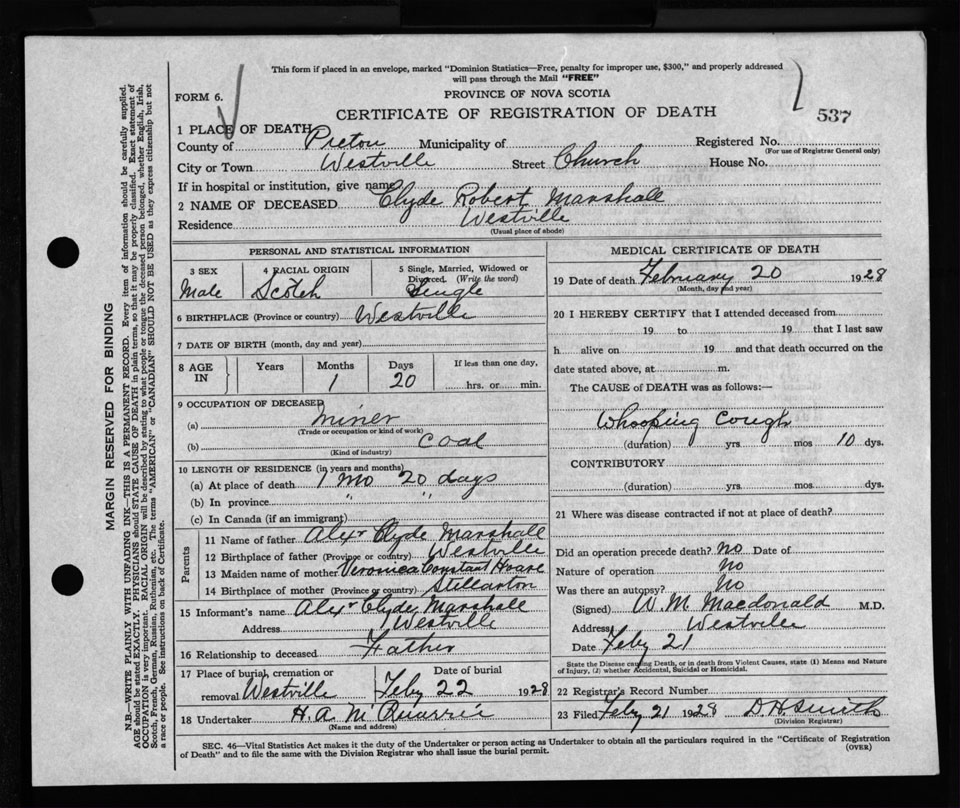 This form if placed in an envelope, marked "Dominion Statistics—Free, penalty for improper use, $300," and properly addressed
will pass through the Mail "FREE"
FORM 6.
PROVINCE OF NOVA SCOTIA
CERTIFICATE OF REGISTRATION OF DEATH
537
1 PLACE OF DEATH
County of Pictou Municipality of Registered No.
(For use of Registrar General only)
City or Town Westville Street Church House No.
If in hospital or institution, give name
2 NAME OF DECEASED Clyde Robert Marshall
Residence Westville
(Usual place of abode)
PERSONAL AND STATISTICAL INFORMATION
3 SEX 4 RACIAL ORIGIN 5 Single, Married, Widowed or
Divorced. (Write the word)
Male Scotch Single
6 BIRTHPLACE (Province or country) Westville
7 DATE OF BIRTH (month, day and year)
8 AGE IN Years Months Days If less than one day,
1 20 hrs. or min.
9 OCCUPATION OF DECEASED
(a) miner
(Trade or occupation or kind of work)
(b) coal
(Kind of industry)
10 LENGTH OF RESIDENCE (in years and months)
(a) At place of death 1 mo 20 days
(b) In province " "
(c) In Canada (if an immigrant)
Parents
11 Name of father Alexr Clyde Marshall
12 Birthplace of father (Province or country) Westville
13 Maiden name of mother Veronica Constant Hoare
14 Birthplace of mother (Province or country) Stellarton
15 Informant's name Alexr Clyde Marshall
Address Westville
16 Relationship to deceased Father
17 Place of burial, cremation or Date of burial
removal Westville Feby 22 1928
18 Undertaker H. A.
(Name and address)
MEDICAL CERTIFICATE OF DEATH
19 Date of death February 20 1928
(Month, day and year)
20 I HEREBY CERTIFY that I attended deceased from
19 to 19 that I last saw
h alive on 19 and that death occurred on the
date stated above, at m.
The CAUSE of DEATH was as follows:—
Whooping Cough
(duration) yrs. mos 10 dys.
CONTRIBUTORY
(duration) yrs. mos dys.
21 Where was disease contracted if not at place of death?
Did an operation precede death? no Date of
Nature of operation no
Was there an autopsy? no
(Signed) W. M. Macdonald M.D.
Address Westville
Date Feby 21
State the Disease causing Death, or in death from Violent Causes, state (1) Means and Nature
of Injury, (2) whether Accidental, Suicidal or Homicidal.
22 Registrar's Record Number
23 Filed Feby 21 1928 D. H. Smith
(Division Registrar)
SEC. 46—Vital Statistics Act makes it the duty of the Undertaker or person acting as Undertaker to obtain all the particulars required in the "Certificate of Registration
of Death" and to file the same with the Division Registrar who shall issue the burial permit. (OVER)
MARGIN RESERVED FOR BINDING
N.B.—WRITE PLAINLY WITH UNFADING INK—THIS IS A PERMANENT RECORD. Every item of information should be carefully supplied.
AGE should be stated EXACTLY. PHYSICIANS should STATE CAUSE OF DEATH in plain terms, so that it may be properly classified. Exact statement of
OCCUPATION is very important. RACIAL ORIGIN will be described by stating to what people or tongue the deceased person belonged, whether English, Irish,
Scotch, French, German, Russian, Ruthenian, etc. The terms "AMERICAN" or "CANADIAN" SHOULD NOT BE USED as they express citizenship but not
a race or people. See instructions on back of Certificate.